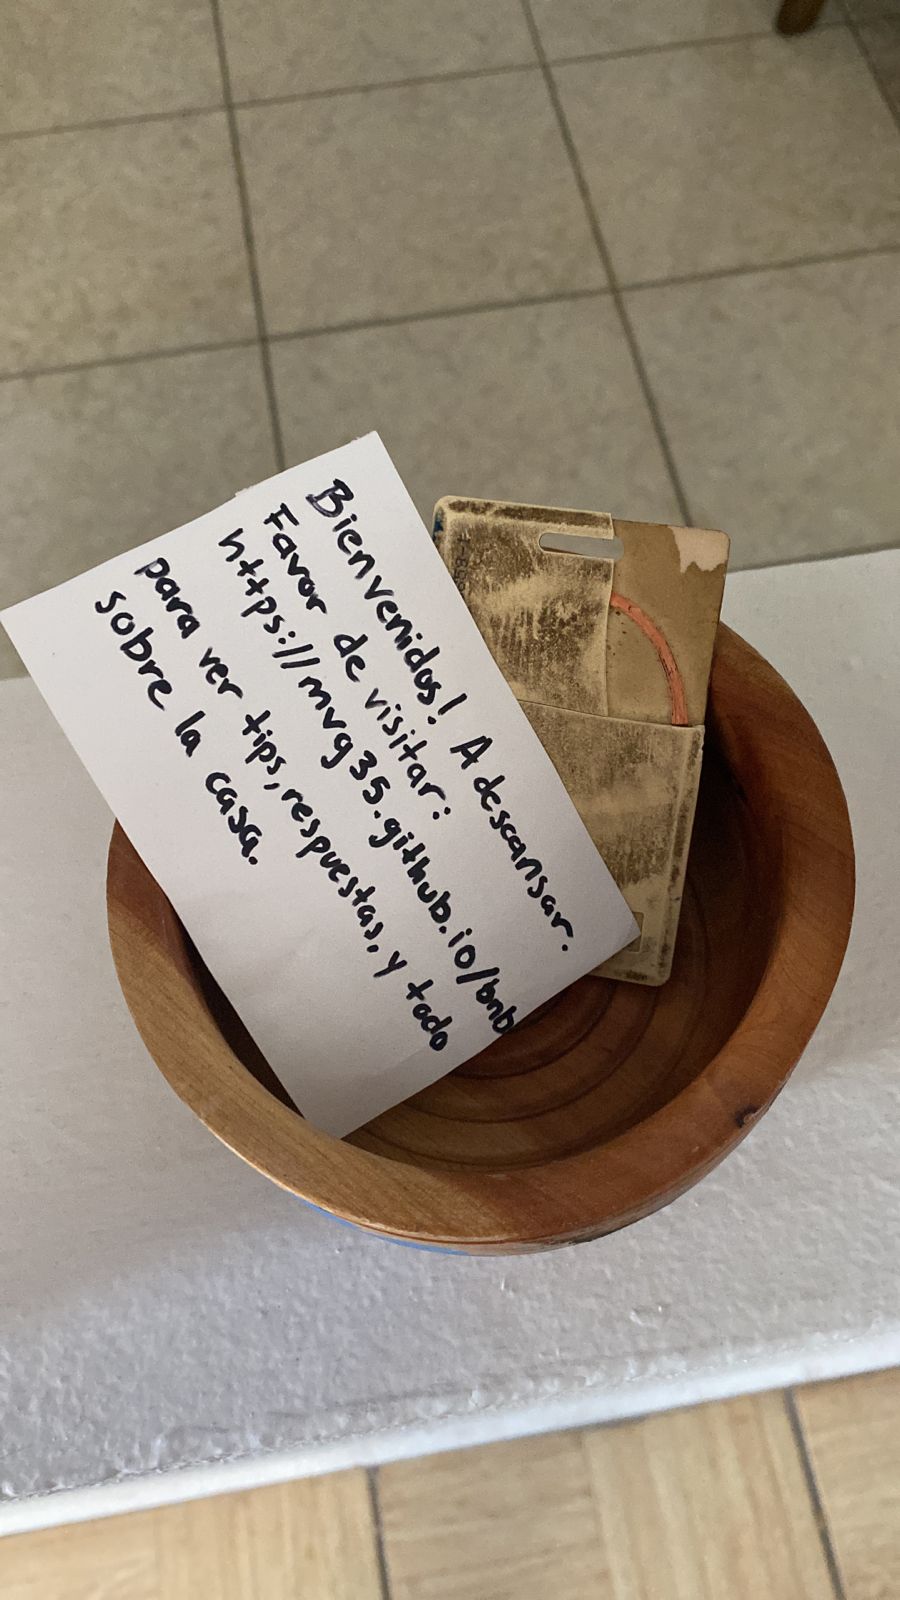 Bienvenidos! A descansar.
Favor de visitar:
https://mvg35.github.io/bnb
para ver tips, respuestas, y todo
sobre la casa.